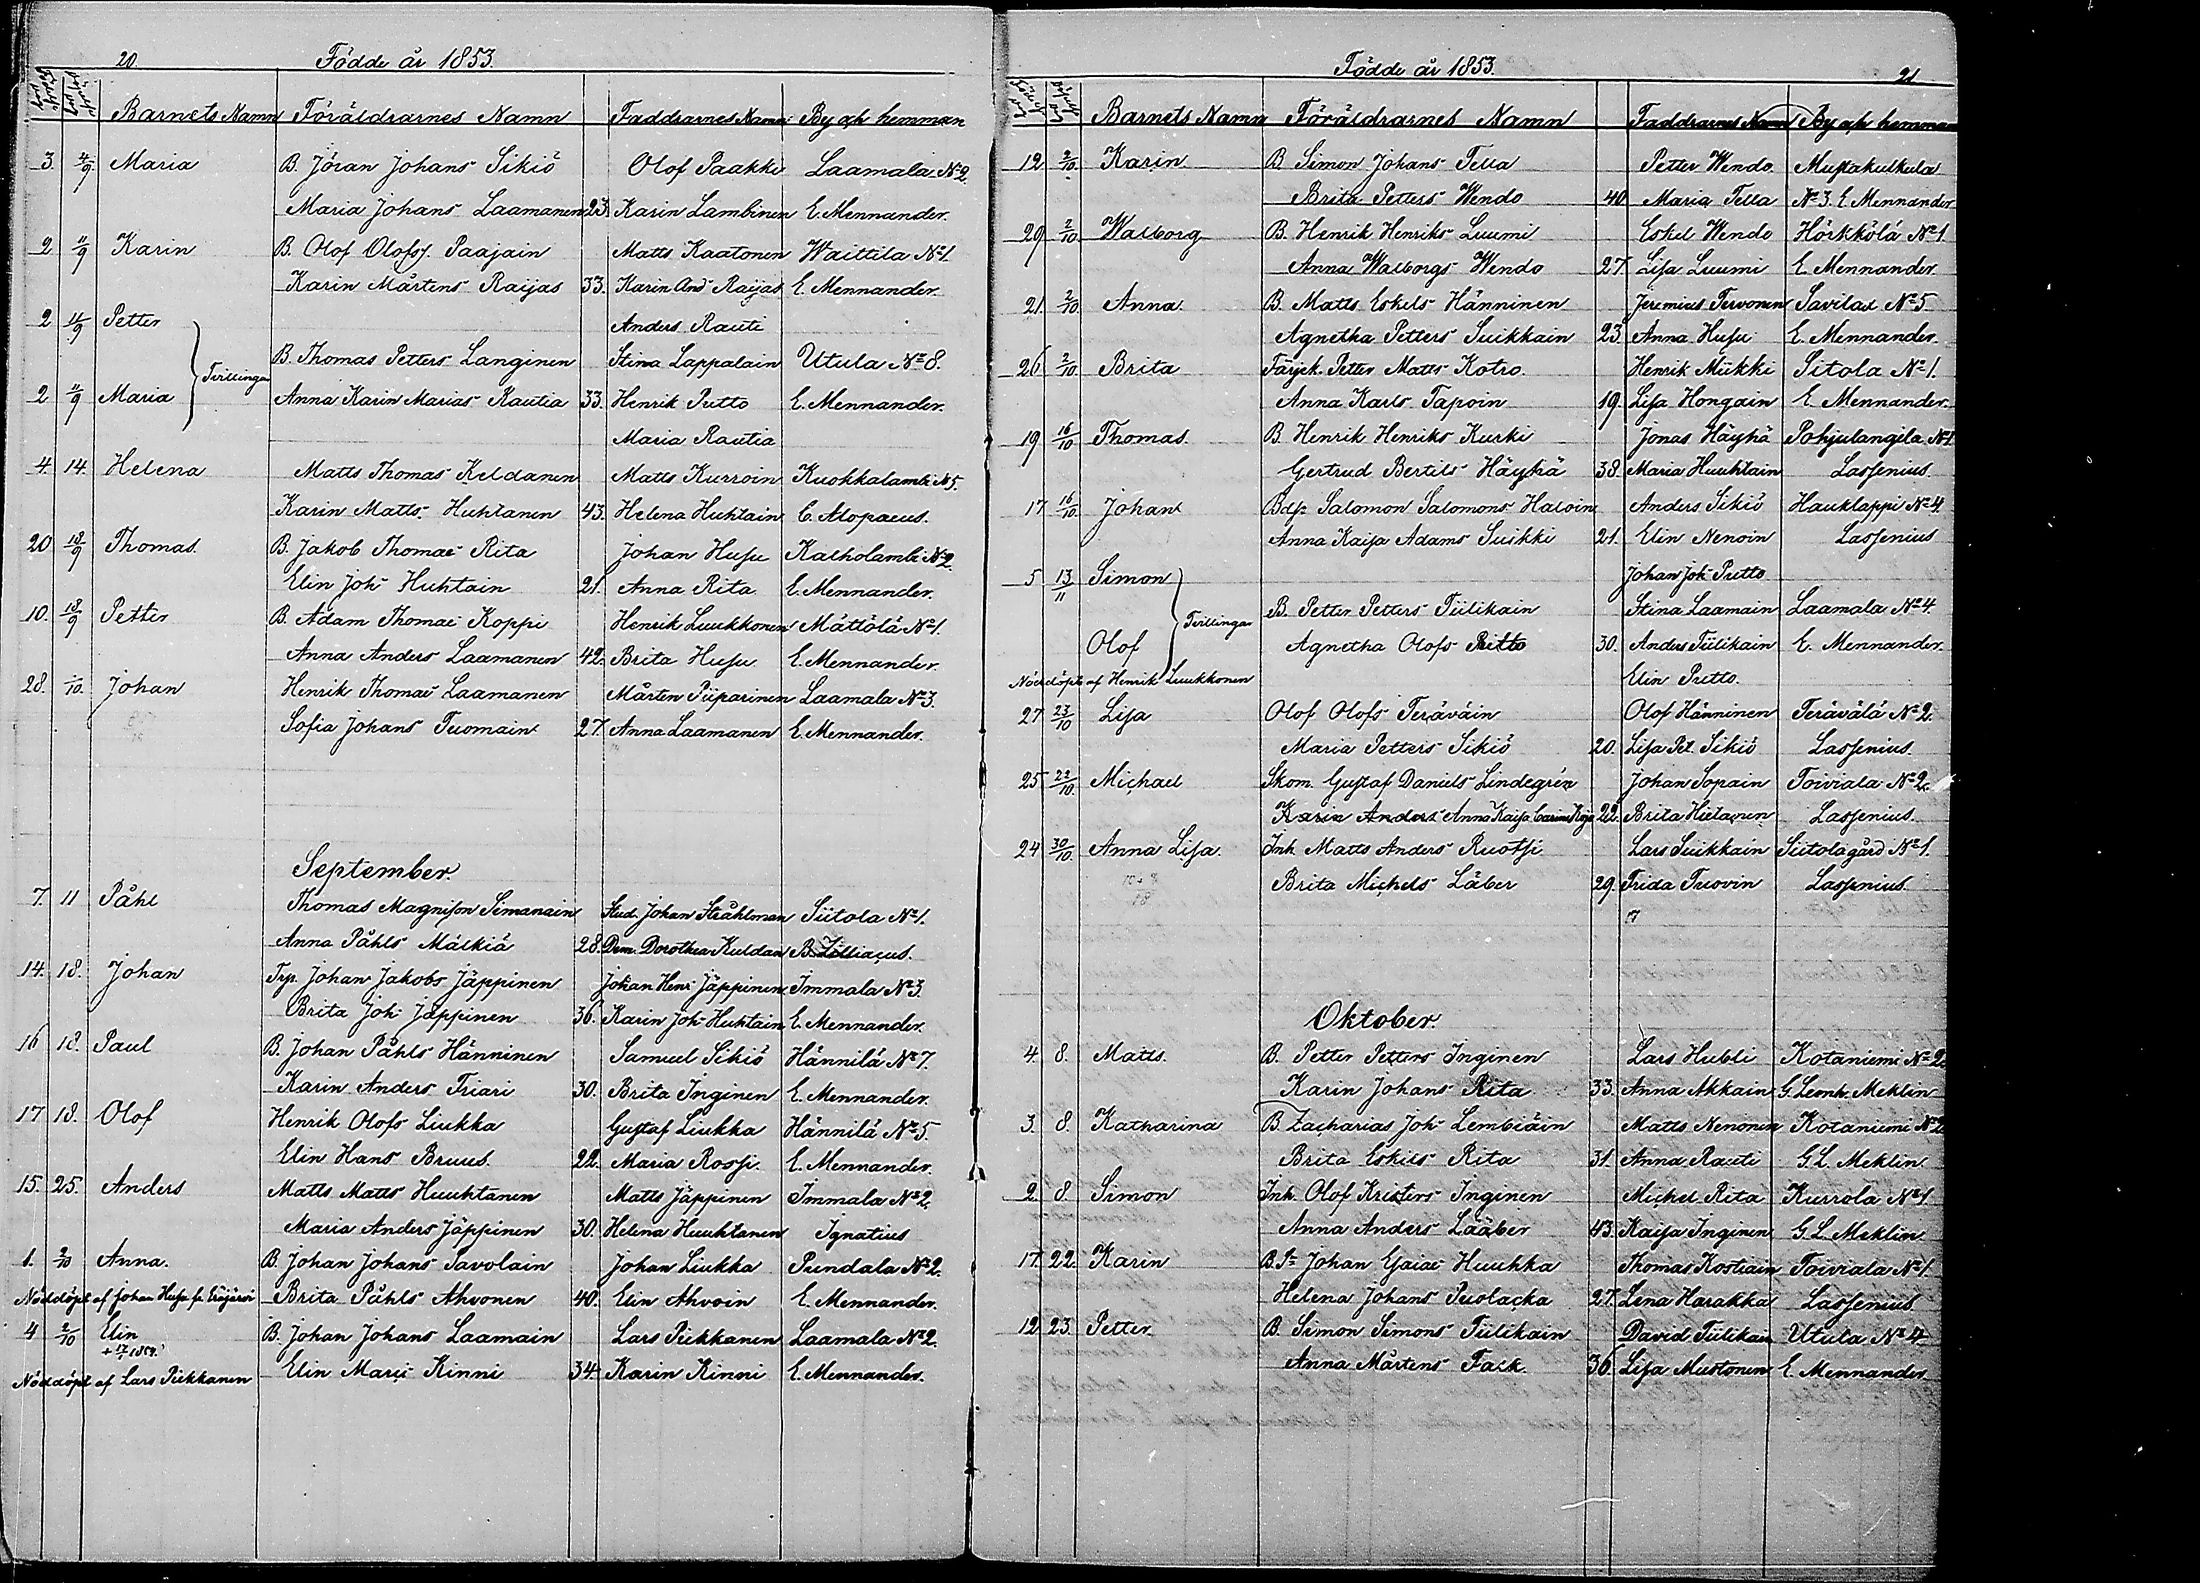 20.
Födde år 1853.
Barnets Namn Föräldrarnes Namn Faddrarnes Namn By och hemman
3 4/9 Maria B. Jöran Johans Sikiö Olof Paakki Laamala No 2.
Maria Johans Laamanen 23 Karin Lambinen E. Mennander.
2 11/9 Karin B. Olof Olofsf. Paajain Matts Kaatonen Waittila No 1.
Karin Mårtens Raijas 33. Karin And Raijas E. Mennander.
2 11/9 Petter Anders Rauti
B. Thomas Petters Langinen Stina Lappalain Utula No 8.
Tvillingar
2 11/9 Maria Anna Karin Marias Rautia 33. Henrik Putto E. Mennander.
Maria Rautia
4. 14. Helena Matts Thomas Keldanen Matts Kurroin Kuokkalambi No 5.
Karin Matts Huhtanen 43. Helena Huhtain C. Alopaeus.
20 18/9 Thomas. B. Jakob Thomae Rita Johan Hufu Kalholambi No 2.
Elin Joh Huhtain 21. Anna Rita E. Mennander.
10. 18/9 Petter B. Adam Thomae Koppi Henrik Luukkonen Mättölä No 1.
Anna Anders Laamanen 42. Brita Hufu E. Mennander.
28. /10. Johan Henrik Thomae Laamanen Mårten Piiparinen Laamala No 3.
Sofia Johans Tuomain 27. Anna Laamanen E. Mennander.
September.
7. 11 Påhl Thomas Magnifon Simanain Stud. Johan Stråhlman Siitola No 1.
Anna Påhls Mälkiä 28. Dem. Dorothea Kuldan B. Lilliacus.
14. 18. Johan Trp. Johan Jakobs Jäppinen Johan Henr Jäppinen Immala No 3.
Brita Joh Jäppinen 36. Karin Joh Huhtain E. Mennander.
16 18. Paul B. Johan Påhls Hänninen Samuel Sikiö Hännilä No 7.
Karin Anders Friari 30. Brita Inginen E. Mennander.
17 18. Olof Henrik Olofs Liukka Gustaf Liukka Hännilä No 5.
Elin Hans Bruus. 22. Maria Rossi. E. Mennander.
15. 25. Anders Matts Matts Huuhtanen Matts Jäppinen Immala No 2.
Maria Anders Jäppinen 30. Helena Huuhtanen Ignatius
1. 2/10 Anna. B. Johan Johans Savolain Johan Liukka Pundala No 2.
Nöddöpt af Johan Hufu fr. Eräjärvi Brita Påhls Ahvonen 40. Elin Ahvoin E. Mennander.
4 2/10 Elin B. Johan Johans Laamain Lars Piekkanen Laamala No 2.
+ 12/1 1854.
Nöddöpt af Lars Piekkanen Elin Marii Kinni 34 Karin Kinni E. Mennander.
Födde år 1853.
21
Barnets Namn Föräldrarnes Namn Faddrarnes Namn By och hemman
12 2/10 Karin B. Simon Johans Tella Petter Wendo Mustakulkula
Brita Petters Wendo 40 Maria Tella No 3. E. Mennander
29 2/10 Walborg B. Henrik Henriks Luumi Eskel Wendo Hörkkölä No 1
Anna Walborgs Wendo 27 Lisa Luumi E. Mennander.
21. 2/10 Anna. B. Matts Eskels Hänninen Jeremias Tervonen Savilax No 5.
Agnetha Petters Suikkain 23. Anna Hufu E. Mennander.
26 2/10 Brita Färjek. Petter Matts Kotro. Henrik Mükki Sitola No 1.
Anna Karls Tapoin 19. Lisa Hongain E. Mennander.
19 16/10 Thomas. B. Henrik Henriks Kurki Jonas Häyhä Pohjulangila No 1
Gertrud Bertils Häyhä 38. Maria Huuhtain Lassenius.
17 16/10. Johan Bdf. Salomon Salomons Haloin Anders Sikiö Hauklappi No 4
Anna Kaisa Adams Suikki 21. Elin Nenoin Lassenius
5 13/11 Simon Johan Joh Putto
B. Petter Petters Tiilikain Stina Laamain Laamala No 4.
Tvillingar
Olof Agnetha Olofs Putto 30. Anders Tiilikain E. Mennander.
Nöddöpt af Henrik Luukkonen Elin Putto.
27 23/10 Lisa Olof Olofs Teräväin Olof Hänninen Terävälä No 2.
Maria Petters Sikiö 20. Lisa Pet. Sikiö Lassenius.
25 22/10. Michael Skom. Gustaf Daniels Lindegrén Johan Sopain Toiviala No 2.
Karin Anders Anna Kaisa 22. Brita Hietanen Lassenius.
24 30/10. Anna Lisa. Inh. Matts Anders Ruotsi Lars Suikkain Siitola gård No 1.
Brita Michels Läber 29. Frida Tuovin Lassenius.
Oktober.
4. 8. Matts. B. Petter Petters Inginen Lars Hubli Kotaniemi No 2.
Karin Johans Rita 33. Anna Akkain G. Leonh. Meklin
3. 8. Katharina B. Zacharias Joh Lembiäin Matts Nenonen Kotaniemi No 2
Brita Eskils Rita 31. Anna Rauti G. L. Meklin
2 8. Simon Inh. Olof Kristers Inginen Michel Rita Kurrola No 1
Anna Anders Lääber 43. Kaisa Inginen G. L. Meklin
17. 22. Karin B. Johan Esaiae Huuhka Thomas Kostiain Toiviala No 1.
Helena Johans Puolacka 27. Lena Harakka Lassenius
12 23. Petter. B. Simon Simons Tiilikain David Tiilikain Utula No 4
Anna Mårtens Fack. 36. Lisa Mustonen E. Mennander